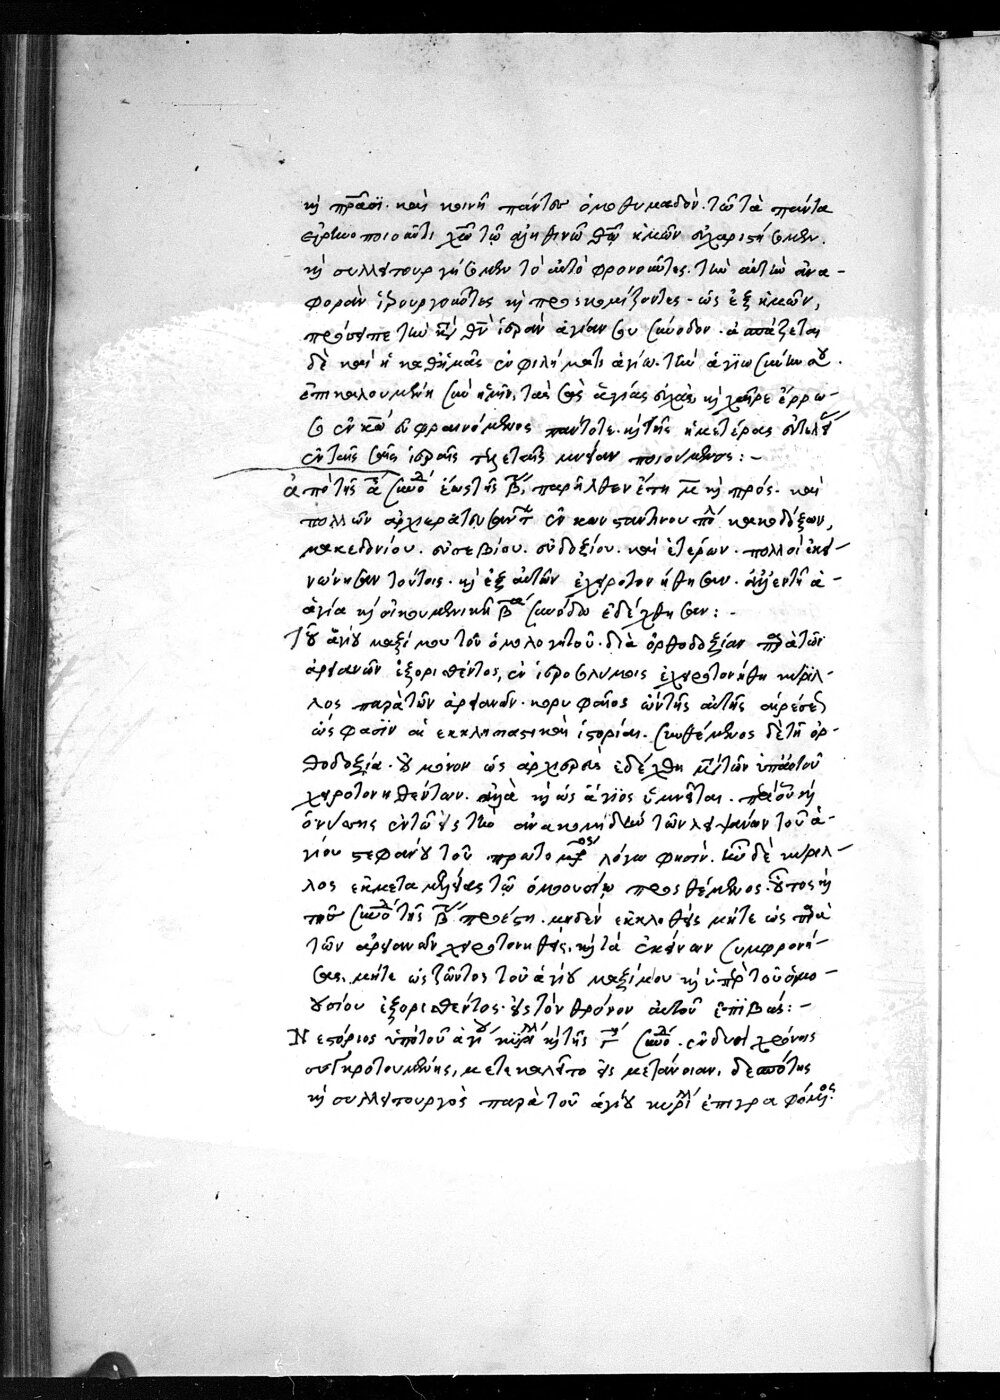 κὴ πρᾶοϊ. καὶ κοινῇ πάντες ὁμοθυμαδὸν. τῶ τὰ πάντα
εἰρηνοποιοῦντι χῶ τῶ ἀληθινῶ θῶ ἡμῶν εὐχαριστήσωμεν.
κὴ συλλειτουργήσωμεν τὸ αὐτὸ φρονοῦντες. τὴν αὐτὴν ἀνα-
φορὰν ἱερουργοῦντες κὴ προσκομίζοντες. ὡς ἐξ ἡμῶν,
πρόσειπε τὴν κατὰ θν ἱερὰν ἁγίαν σου σύνοδον. ἀσπάζεται
δὲ καὶ ἡ καθ' ἡμᾶς ἐν φιλήματι ἁγίω. τὴν ἁγίωσύνην σου.
ἐπικαλουμένη σὺν ἡμῖν, τὰς σὰς ἁγίας εὐχάς, κὴ χαῖρε ἔρρω-
σο ἐν κω εὐφραινόμενος πάντοτε. κὴ τῆς ἡμετέρας εὐτελείας
ἐν ταῖς σαῖς ἱεραῖς τελεταῖς μνείαν ποιούμενος:-
ἀπὸ τῆς α συνόδ ἕως τῆς β, παρῆλθεν ἔτη μ κὴ πρός. καὶ
πολλῶν ἀρχιερατευσάντ ἐν κωνσταντινουπόλ κακοδόξων,
μακεδονίου. εὐσεβίου. εὐδοξίου. καὶ ἑτέρων. πολλοὶ ἐκοι-
νώνησαν τούτοις. κὴ ἐξ αὐτῶν ἐχειροτονήθησαν. ἀλλ' ἐν τῆ ἁ-
ἁγία κὴ οἰκουμενικῆ β συνόδω ἐδέχθησαν:-
Τοῦ ἁγίου μαξίμου τοῦ ὁμολογητοῦ. διὰ ὀρθοδοξίαν παρὰ τῶν
ἀρειανῶν ἐξορισθέντος, ἐν ἱεροσολύμοις ἐχειροτονήθη κύριλ-
λος παρὰ τῶν ἀρειανῶν. κορυφαῖος ὢν τῆς αὐτῆς αἱρέσεως
ὡς φασὶν αἱ ἐκκλησιαστικαὶ ἱστορίαι. συνθέμενος δὲ τῆ ὀρ-
θοδοξία. οὐ μόνον ὡς ἀρχιερεὺς ἐδέχθη μετὰ τῶν ὑπ' αὐτοῦ
χειροτονηθέντων. ἀλλὰ κὴ ὡς ἅγιος ὑμνεῖται.
ὀνύσης ἐν τῶ εἰς τὴν ἀνακομιδὴν τῶν λειψάνων τοῦ ἁ-
γίου στεφάνου τοῦ πρωτομρ λόγω φησὶν. τῶ δὲ κύριλ-
λος ἐκμεταμελείας τῶ ὁμοουσίω προσθέμενος. οὗτος κὴ
τῆς συνόδ τῆς β προέστη. μηδὲν ἐκκλοθεὶς μήτε ὡς παρὰ
τῶν ἀρειανῶν χειροτονηθεὶς, κὴ τὰ ἐκείνων συμφρονή-
σας, μήτε ὡς ζῶντος τοῦ ἁγίου μαξίμου κὴ ὑπὲρ τοῦ ὁμο-
ουσίου ἐξορισθέντος. εἰς τὸν θρόνον αὐτοῦ ἐπϊβάς:-
Νεστόριος ὑπὸ τοῦ ἁγί κυρίλ κὴ τῆς γ συνόδ. ἐν δυσὶ χρόνοις
συγκροτουμένης, μετεκαλεῖτο εἰς μετάνοιαν, δεσπότης
κὴ συλλειτουργὸς παρὰ τοῦ ἁγίου κυρίλ ἐπιγραφόμενος.